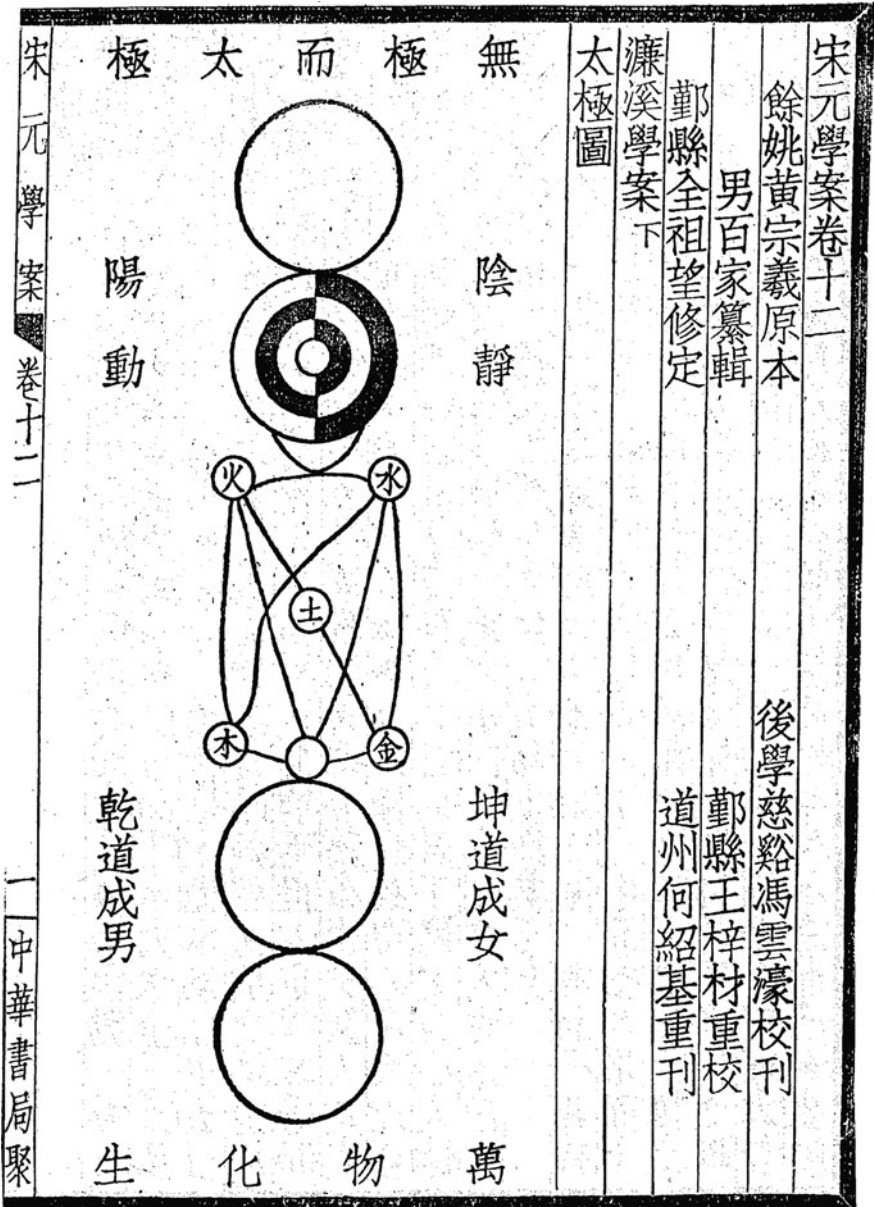 宋元學案卷十二
餘姚黃宗羲原本
後學慈谿馮雲濠校刊
男百家纂輯
鄞縣王梓材重校
鄞縣全祖望修定
道州何紹基重刊
濂溪學案下
太極圖
無極而太極
陰靜
陽動
火
水
土
木
金
坤道成女
乾道成男
萬物化生
宋元學案
卷十二
一
中華書局聚